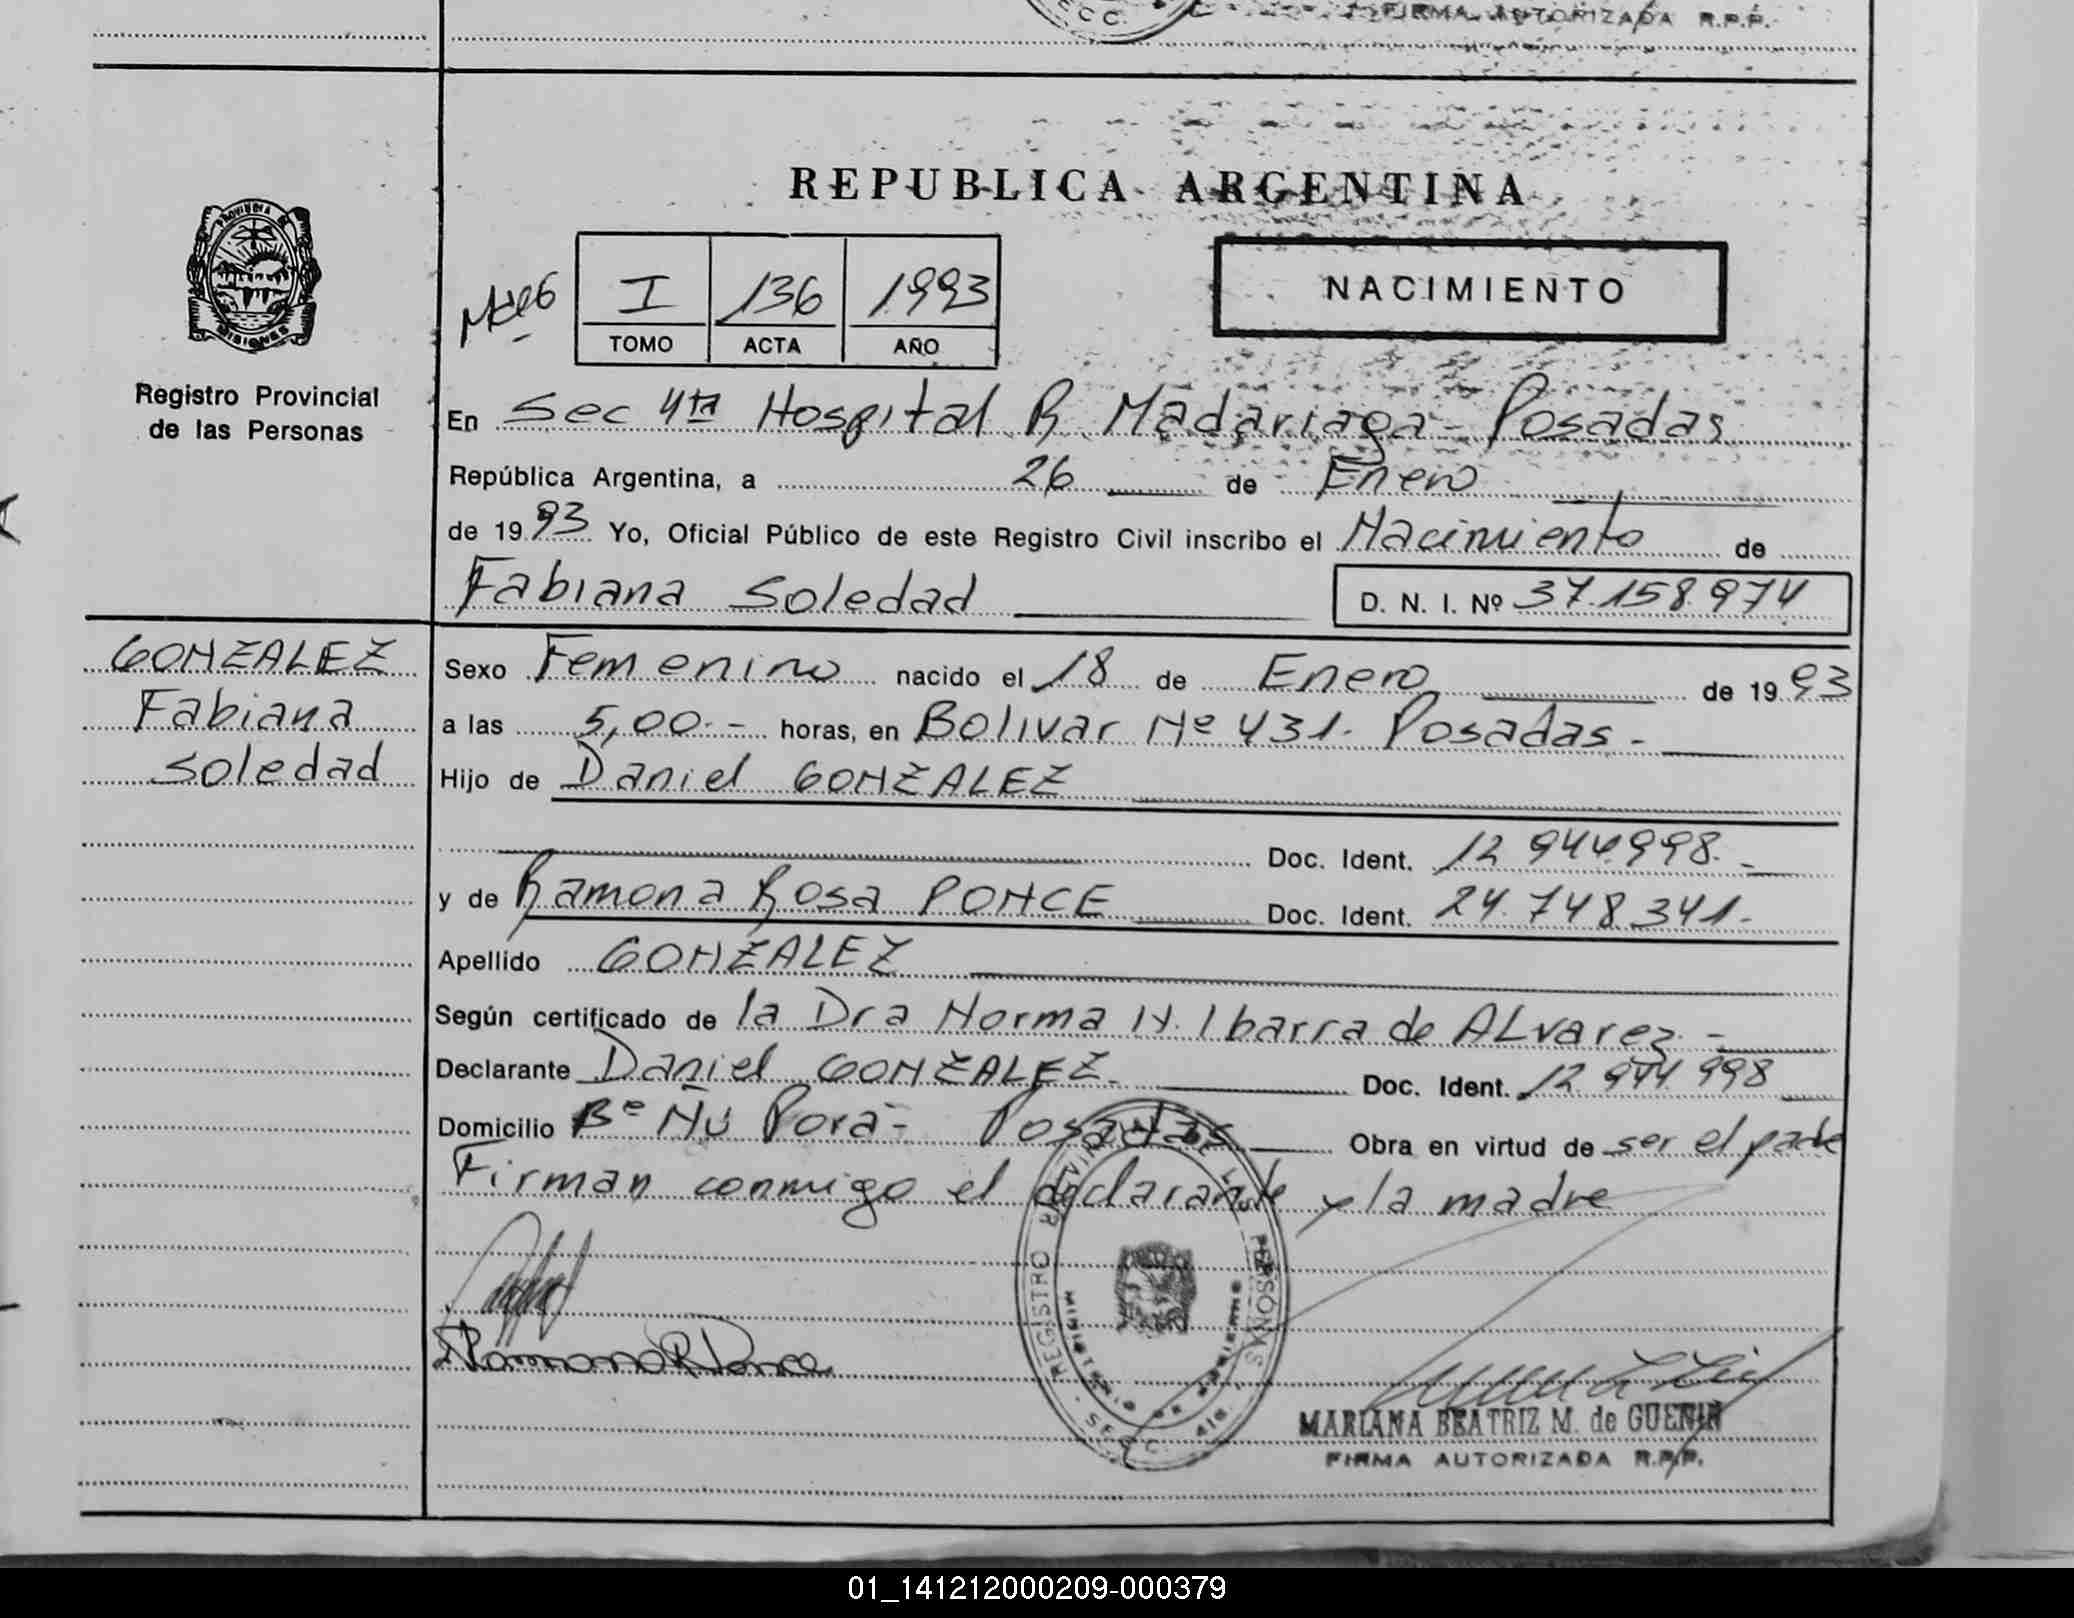 ECC.
FIRMA AUTORIZADA R.P.P.
REPUBLICA ARGENTINA
PROVINCIA DE
MISIONES
Registro Provincial
de las Personas
I 136 1993
TOMO ACTA AÑO
NACIMIENTO
En Sec 4ta Hospital R Madariaga - Posadas
República Argentina, a 26 de Enero
de 1993 Yo, Oficial Público de este Registro Civil inscribo el Nacimiento de
Fabiana Soledad D. N. I. Nº 37.158.974
GONZALEZ
Fabiana
Soledad
Sexo Femenino nacido el 18 de Enero de 1993
a las 5,00.- horas, en Bolivar Nº 431. Posadas.-
Hijo de Daniel GONZALEZ
Doc. Ident. 12 944.998.-
y de Ramona Rosa PONCE Doc. Ident. 24.748.341.-
Apellido GONZALEZ
Según certificado de la Dra Norma N. Ibarra de ALvarez.-
Declarante Daniel GONZALEZ. Doc. Ident. 12 944 998
Domicilio Bº Ñu Porá - Posadas Obra en virtud de ser el padre
Firman conmigo el declarante y la madre
REGISTRO PROVINCIAL DE LAS PERSONAS
MINISTERIO DE GOBIERNO
Ramona R Ponce
MARIANA BEATRIZ M. de GUENIN
FIRMA AUTORIZADA R.P.P.
01_141212000209-000379